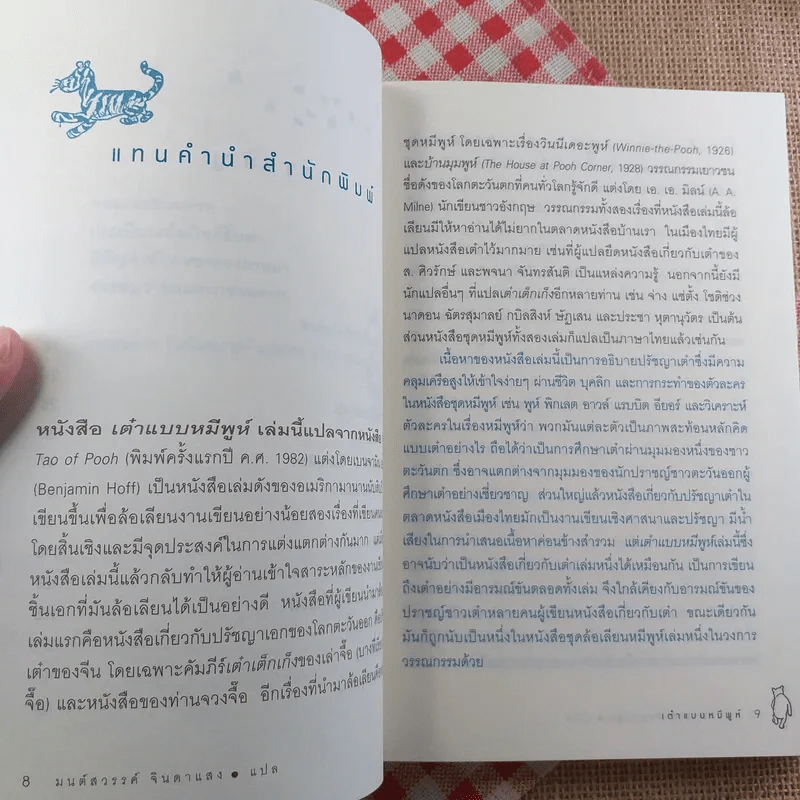 แทนคำนำสำนักพิมพ์
หนังสือ เต๋าแบบหมีพูห์ เล่มนี้แปลจากหนังสือ
Tao of Pooh (พิมพ์ครั้งแรกปี ค.ศ. 1982) แต่งโดยเบนจามิน
(Benjamin Hoff) เป็นหนังสือเล่มดังของอเมริกามานานนับสิบ
เขียนขึ้นเพื่อล้อเลียนงานเขียนอย่างน้อยสองเรื่องที่เขียน
โดยสิ้นเชิงและมีจุดประสงค์ในการแต่งแตกต่างกันมาก
หนังสือเล่มนี้แล้วกลับทำให้ผู้อ่านเข้าใจสาระหลักของงาน
ชิ้นเอกที่มันล้อเลียนได้เป็นอย่างดี หนังสือที่ผู้เขียนนำมา
เล่มแรกคือหนังสือเกี่ยวกับปรัชญาเอกของโลกตะวันออก
เต๋าของจีน โดยเฉพาะคัมภีร์เต๋าเต็กเก็งของเล่าจื๊อ (บางที
จื๊อ) และหนังสือของท่านจวงจื๊อ อีกเรื่องที่นำมาล้อเลียน
8 มนต์สวรรค์ จินดาแสง ● แปล
ชุดหมีพูห์ โดยเฉพาะเรื่องวินนีเดอะพูห์ (Winnie-the-Pooh, 1926)
และบ้านมุมพูห์ (The House at Pooh Corner, 1928) วรรณกรรมเยาวชน
ชื่อดังของโลกตะวันตกที่คนทั่วโลกรู้จักดี แต่งโดย เอ. เอ. มิลน์ (A. A.
Milne) นักเขียนชาวอังกฤษ วรรณกรรมทั้งสองเรื่องที่หนังสือเล่มนี้ล้อ
เลียนมีให้หาอ่านได้ไม่ยากในตลาดหนังสือบ้านเรา ในเมืองไทยมีผู้
แปลหนังสือเต๋าไว้มากมาย เช่นที่ผู้แปลยึดหนังสือเกี่ยวกับเต๋าของ
ส. ศิวรักษ์ และพจนา จันทรสันติ เป็นแหล่งความรู้ นอกจากนี้ยังมี
นักแปลอื่นๆ ที่แปลเต๋าเต็กเก็งอีกหลายท่าน เช่น จ่าง แซ่ตั้ง โชติช่วง
นาดอน ฉัตรสุมาลย์ กบิลสิงห์ ษัฏเสน และประชา หุตานุวัตร เป็นต้น
ส่วนหนังสือชุดหมีพูห์ทั้งสองเล่มก็แปลเป็นภาษาไทยแล้วเช่นกัน
เนื้อหาของหนังสือเล่มนี้เป็นการอธิบายปรัชญาเต๋าซึ่งมีความ
คลุมเครือสูงให้เข้าใจง่ายๆ ผ่านชีวิต บุคลิก และการกระทำของตัวละคร
ในหนังสือชุดหมีพูห์ เช่น พูห์ พิกเลต อาวล์ แรบบิต อียอร์ และวิเคราะห์
ตัวละครในเรื่องหมีพูห์ว่า พวกมันแต่ละตัวเป็นภาพสะท้อนหลักคิด
แบบเต๋าอย่างไร ถือได้ว่าเป็นการศึกษาเต๋าผ่านมุมมองหนึ่งของชาว
ตะวันตก ซึ่งอาจแตกต่างจากมุมมองของนักปราชญ์ชาวตะวันออกผู้
ศึกษาเต๋าอย่างเชี่ยวชาญ ส่วนใหญ่แล้วหนังสือเกี่ยวกับปรัชญาเต๋าใน
ตลาดหนังสือเมืองไทยมักเป็นงานเขียนเชิงศาสนาและปรัชญา มีน้ำ
เสียงในการนำเสนอเนื้อหาค่อนข้างสำรวม แต่เต๋าแบบหมีพูห์เล่มนี้ซึ่ง
อาจนับว่าเป็นหนังสือเกี่ยวกับเต๋าเล่มหนึ่งได้เหมือนกัน เป็นการเขียน
ถึงเต๋าอย่างมีอารมณ์ขันตลอดทั้งเล่ม จึงใกล้เคียงกับอารมณ์ขันของ
ปราชญ์ชาวเต๋าหลายคนผู้เขียนหนังสือเกี่ยวกับเต๋า ขณะเดียวกัน
มันก็ถูกนับเป็นหนึ่งในหนังสือชุดล้อเลียนหมีพูห์เล่มหนึ่งในวงการ
วรรณกรรมด้วย
เต๋าแบบหมีพูห์ 9